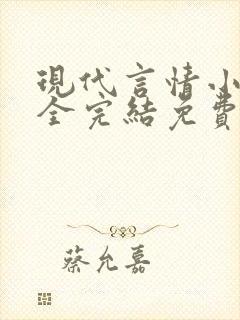 現代言情小
全完結免費
蔡允嘉